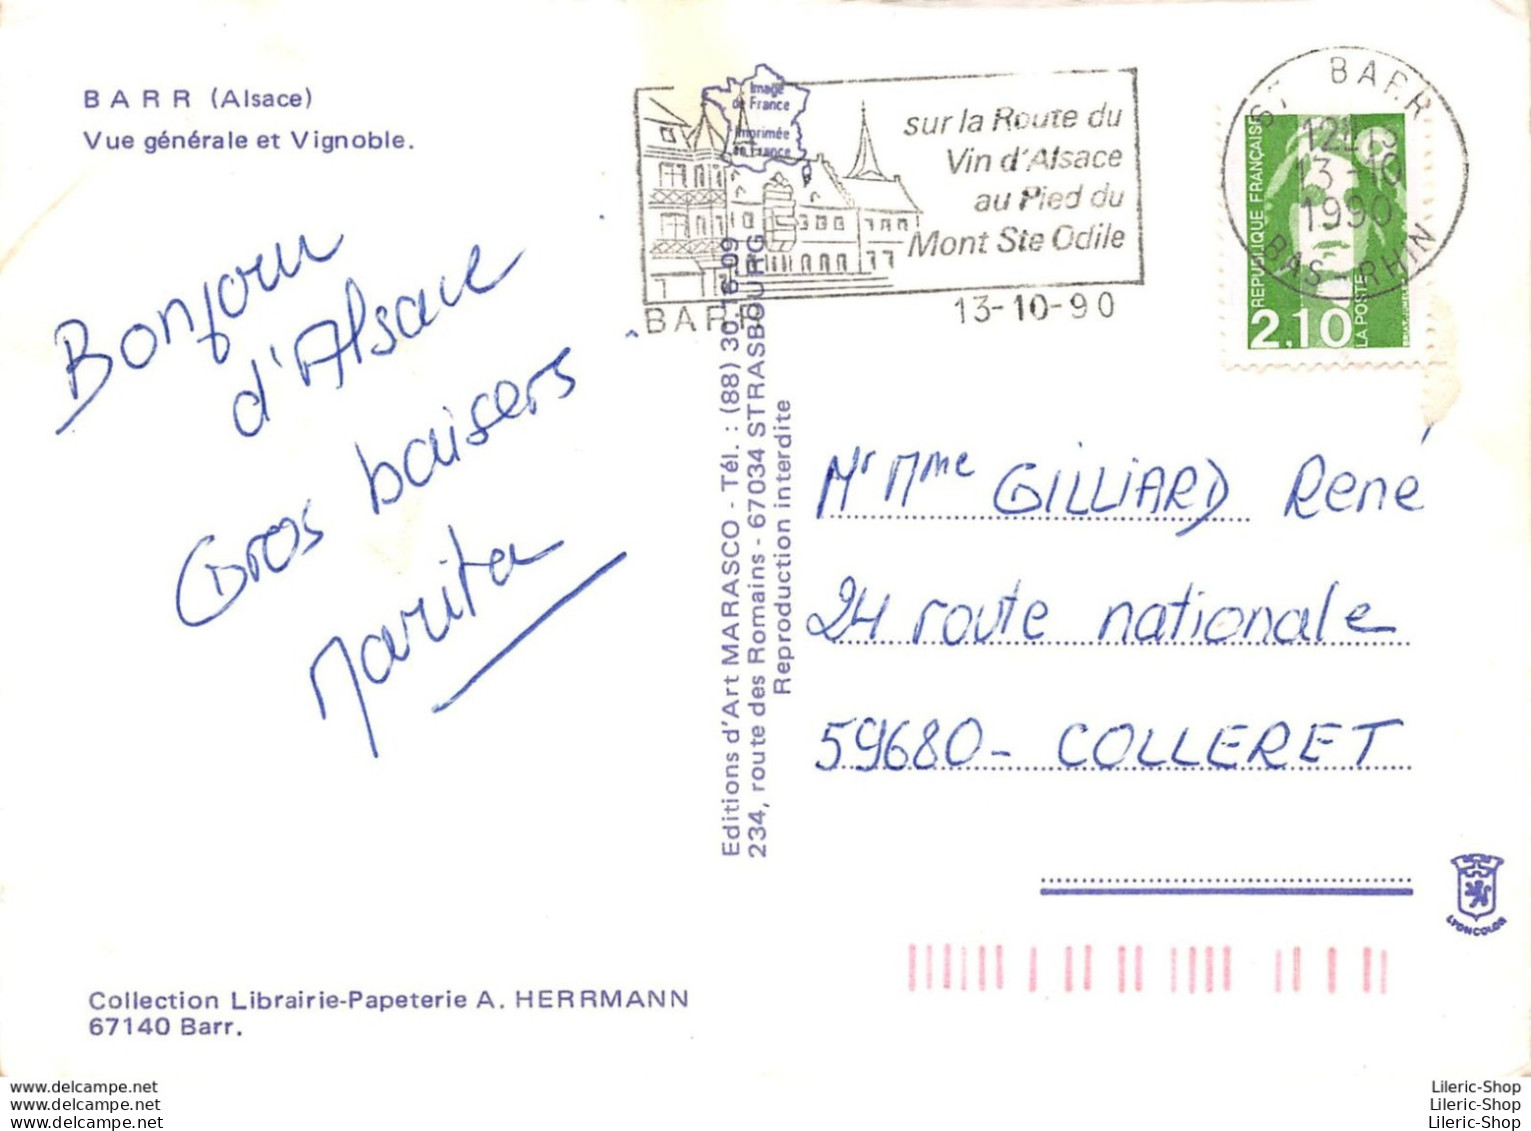 BARR (Alsace)
Vue générale et Vignoble.
Bonjour
d'Alsace
Gros baisers
Marita
Image
de France
Imprimée
en France
sur la Route du
Vin d'Alsace
au Pied du
Mont Ste Odile
BARR
13-10-90
BARR
13-10
1990
BAS-RHIN
REPUBLIQUE FRANÇAISE
LA POSTE
2,10
Editions d'Art MARASCO - Tél. : (88) 30.16.09
234, route des Romains - 67034 STRASBOURG
Reproduction interdite
Mr Mme GILLIARD René
24 route nationale
59680 - COLLERET
LYONCOLOR
Collection Librairie-Papeterie A. HERRMANN
67140 Barr.
www.delcampe.net
www.delcampe.net
www.delcampe.net
Lileric-Shop
Lileric-Shop
Lileric-Shop